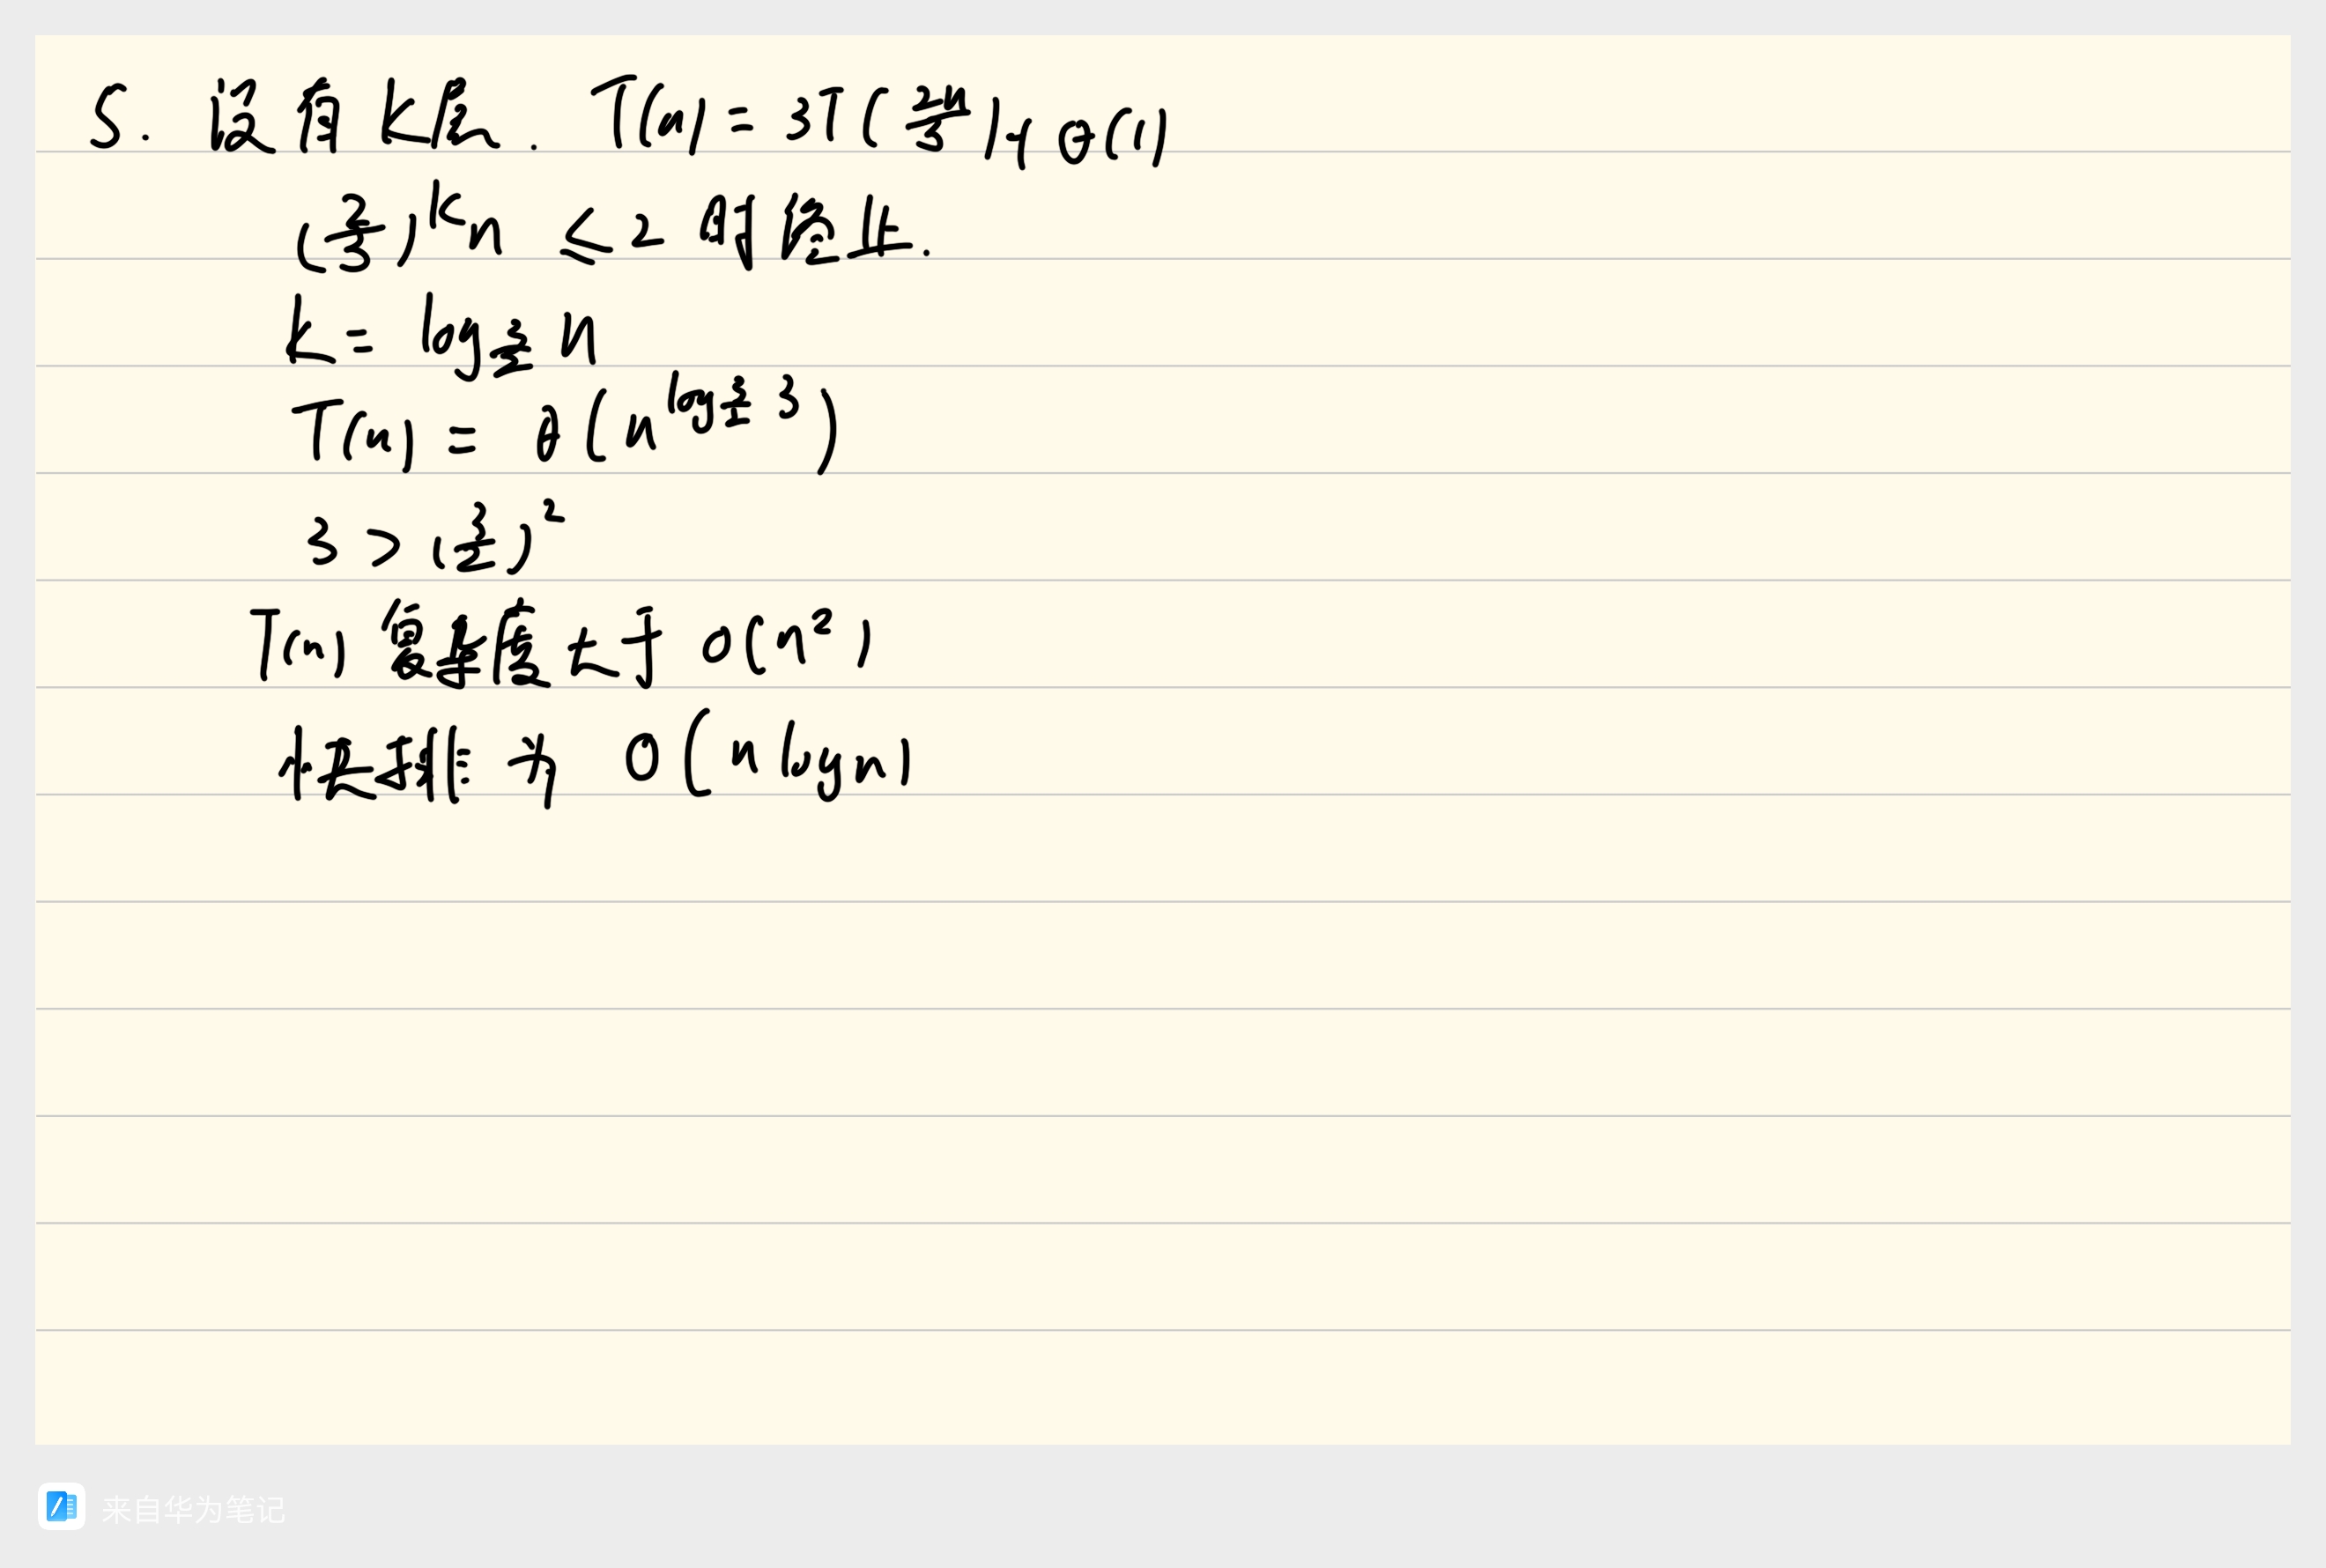 5. 设有k层. T(n) = 3T(2n/3) + θ(1)
(2/3)^k n ≤ 2 时停止.
k = log_{3/2} n
T(n) = θ(n^{log_{3/2} 3})
3 > (3/2)^2
T(n) 复杂度大于 O(n²)
快排为 O(n log n)
来自华为笔记